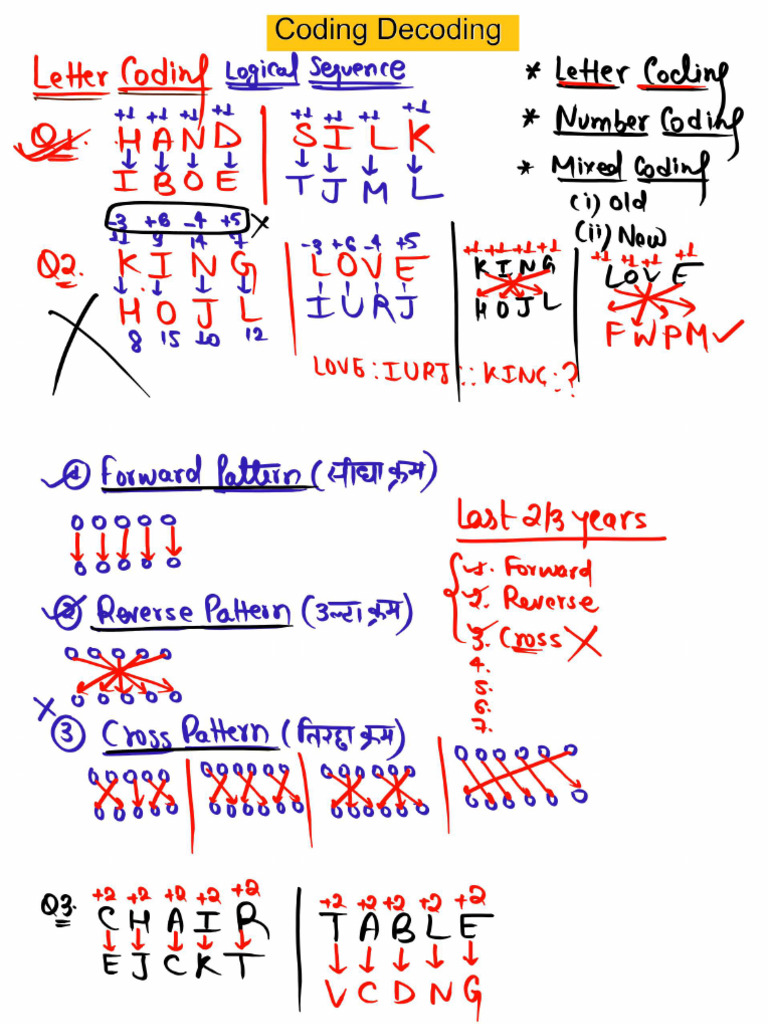 Coding Decoding
Letter Coding Logical Sequence
* Letter Coding
* Number Coding
* Mixed Coding
(i) Old
(ii) New
+1 +1 +1 +1
Q1. HAND
IBOE
+1 +1 +1 +1
SILK
TJML
-3 +6 -4 +5 X
11 9 14 7
Q2. KING
HOJL
8 15 10 12
-3 +6 -4 +5
LOVE
IURJ
+1 +1 +1 +1
KING
HOJL
+1 +1 +1 +1
LOVE
FWPM ✓
LOVE : IURJ :: KING : ?
① Forward Pattern (सीधा क्रम)
② Reverse Pattern (उल्टा क्रम)
X
③ Cross Pattern (तिरछा क्रम)
Last 2/3 years
1. Forward
2. Reverse
3. Cross X
4.
5.
6.
7.
+2 +2 +2 +2 +2
Q3. CHAIR
EJCKT
+2 +2 +2 +2 +2
TABLE
VCDNG